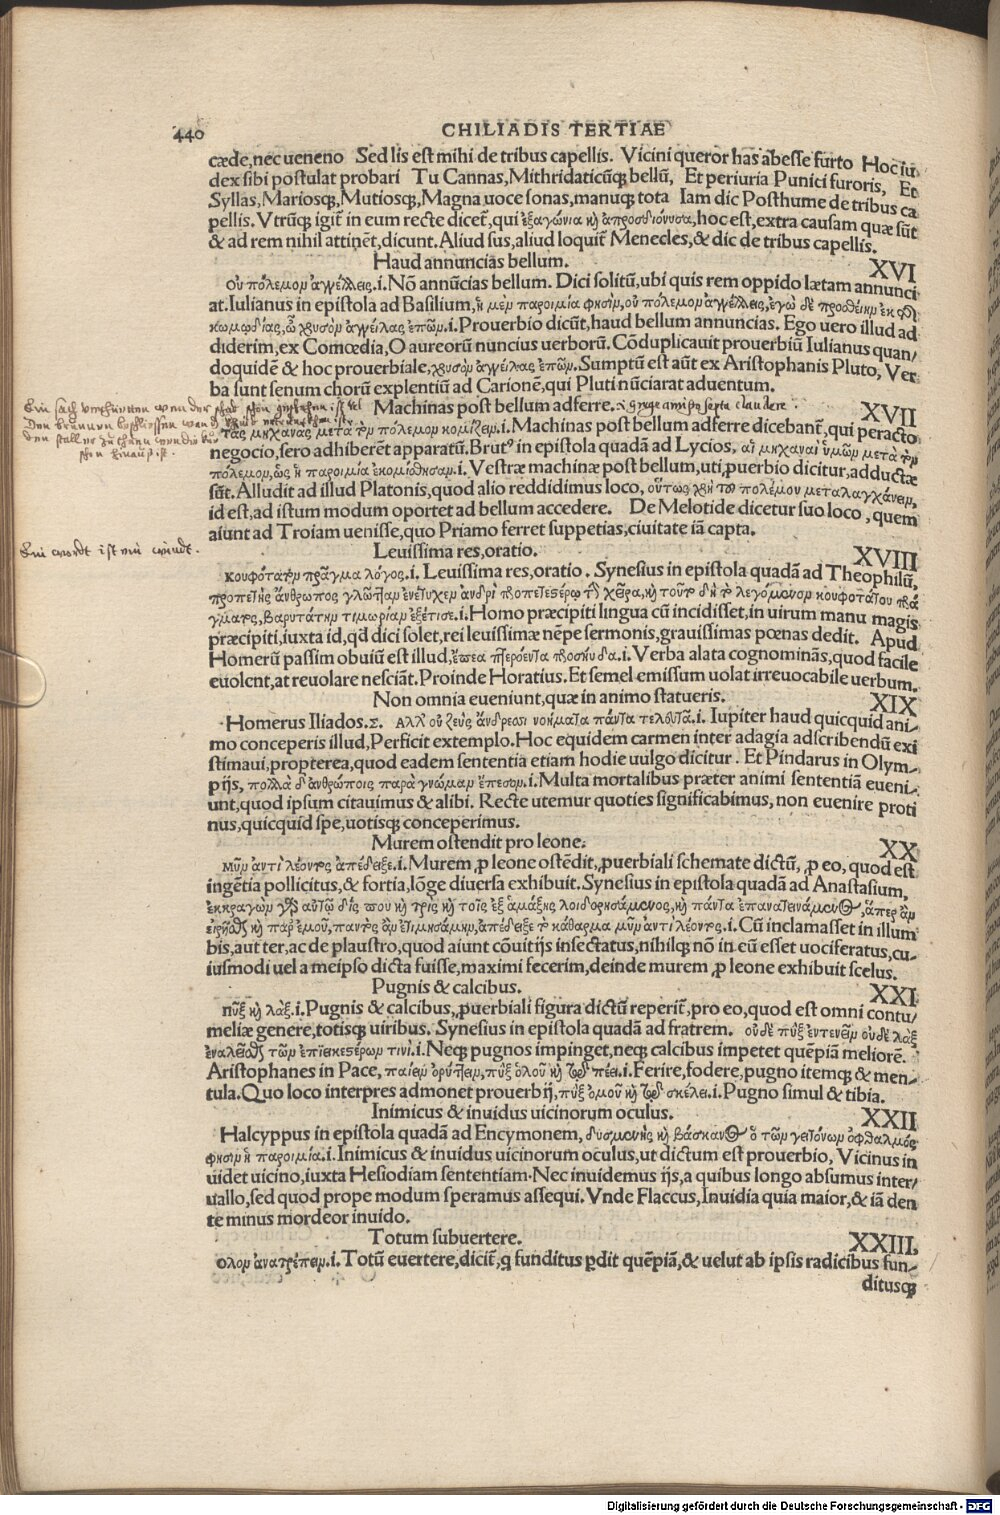 440
CHILIADIS TERTIAE
cæde, nec ueneno Sed lis est mihi de tribus capellis. Vicini queror has abesse furto Hoc iu
dex sibi postulat probari Tu Cannas, Mithridaticũq; bellũ, Et periuria Punici furoris, Et
Syllas, Mariosq;, Mutiosq;, Magna uoce sonas, manuq; tota Iam dic Posthume de tribus ca
pellis. Vtrũq; igit̃ in eum recte dicet̃, qui ἐξαγώνια κ̀ ἀπροσδιόνυσα, hoc est, extra causam quæ sũt
& ad rem nihil attinẽt, dicunt. Aliud sus, aliud loquit̃ Menecles, & dic de tribus capellis.
Haud annuncias bellum. XVI
οὐ πόλεμον ἀγγέλλεις .i. Nõ annũcias bellum. Dici solitũ, ubi quis rem oppido lætam annunci
at. Iulianus in epistola ad Basilium, ἡ μὲν παροιμία φησὶν, οὐ πόλεμον ἀγγέλλεις, ἐγὼ δὲ προσθείην ἐκ τῆ
κωμῳδίας, ὦ χρυσὸν ἀγγείλας ἐπῶν .i. Prouerbio dicũt, haud bellum annuncias. Ego uero illud ad
diderim, ex Comœdia, O aureorũ nuncius uerborũ. Cõduplicauit prouerbiũ Iulianus quan/
doquidẽ & hoc prouerbiale, χρυσὸν ἀγγείλας ἐπῶν. Sumptũ est aũt ex Aristophanis Pluto, Ver
ba sunt senum chorũ explentiũ ad Carionẽ, qui Pluti nũciarat aduentum.
Machinas post bellum adferre. XVII
τὰς μηχανὰς μετὰ τὸν πόλεμον κομίζειν .i. Machinas post bellum adferre dicebant̃, qui peracto
negocio, sero adhiberẽt apparatũ. Brutꝰ in epistola quadã ad Lycios, αἱ μηχαναὶ ὑμῶν μετὰ τὸν
πόλεμον, ὡς ἡ παροιμία ἐκομίσθησαν .i. Vestræ machinæ post bellum, uti ꝓuerbio dicitur, adductæ
sũt. Alludit ad illud Platonis, quod alio reddidimus loco, οὕτως χρὴ τοῦ πολέμου μεταλαγχάνειν,
id est, ad istum modum oportet ad bellum accedere. De Melotide dicetur suo loco, quem
aiunt ad Troiam uenisse, quo Priamo ferret suppetias, ciuitate iã capta.
Ein wordt ist ein windt.
Leuissima res, oratio. XVIII
κουφότατον πρᾶγμα λόγος .i. Leuissima res, oratio. Synesius in epistola quadã ad Theophilũ,
προπετὴς ἄνθρωπος γλῶτταν ἐνέτυχεν ἀνδρὶ προπετεστέρῳ τὴν χεῖρα, κ̀ τοῦτο δὴ τὸ λεγόμενον κουφοτάτου πρά
γματος, βαρυτάτην τιμωρίαν ἐξέτισε .i. Homo præcipiti lingua cũ incidisset, in uirum manu magis
præcipiti, iuxta id, qđ dici solet, rei leuissimæ nẽpe sermonis, grauissimas pœnas dedit. Apud
Homerũ passim obuiũ est illud, ἔπεα πτερόεντα προσηύδα .i. Verba alata cognominãs, quod facile
euolent, at reuolare nesciãt. Proinde Horatius. Et semel emissum uolat irreuocabile uerbum.
Non omnia eueniunt, quæ in animo statueris. XIX
Homerus Iliados. Σ. Αλλ' οὐ ζεὺς ἄνδρεσσι νοήματα πάντα τελευτᾷ .i. Iupiter haud quicquid ani/
mo conceperis illud, Perficit extemplo. Hoc equidem carmen inter adagia adscribendũ exi
stimaui, propterea, quod eadem sententia etiam hodie uulgo dicitur. Et Pindarus in Olym/
pijs, πολλὰ δ' ἀνθρώποις παρὰ γνώμαν ἔπεσον .i. Multa mortalibus præter animi sententiã eueni/
unt, quod ipsum citauimus & alibi. Recte utemur quoties significabimus, non euenire proti
nus, quicquid spe, uotisq; conceperimus.
Murem ostendit pro leone. XX
μῦν ἀντὶ λέοντος ἀπέδειξε .i. Murem ꝓ leone ostẽdit, ꝓuerbiali schemate dictũ, ꝓ eo, quod est
ingẽtia pollicitus, & fortia, lõge diuersa exhibuit. Synesius in epistola quadã ad Anastasium,
ἐκκραγὼν γὰρ αὐτῷ δίς που κ̀ τρὶς κ̀ τοῖς ἐξ ἁμάξης λοιδορησάμενος, κ̀ πάντα ἐπανατεινάμενος, ἅπερ ἂν
εἰρῆσθαι κ̀ παρ' ἐμοῦ, παντὸς ἂν ἐτιμησάμην, ἀπέδειξε τὸ κάθαρμα μῦν ἀντὶ λέοντος .i. Cũ inclamasset in illum
bis, aut ter, ac de plaustro, quod aiunt cõuitijs insectatus, nihilq; nõ in eũ esset uociferatus, cu/
iusmodi uel a meipso dicta fuisse, maximi fecerim, deinde murem ꝓ leone exhibuit scelus.
Pugnis & calcibus. XXI
πὺξ κ̀ λάξ .i. Pugnis & calcibus, ꝓuerbiali figura dictũ reperit̃, pro eo, quod est omni contu/
meliæ genere, totisq; uiribus. Synesius in epistola quadã ad fratrem. οὐδὲ πὺξ ἐντενεῖν οὐδὲ λὰξ
ἐναλεῖσθαι τῶν ἐπιεικεστέρων τινί .i. Neq; pugnos impinget, neq; calcibus impetet quẽpiã meliorẽ.
Aristophanes in Pace, παίειν ὀρύττειν, πὺξ ὁμοῦ κ̀ τῷ πέει .i. Ferire, fodere, pugno itemq; & men/
tula. Quo loco interpres admonet prouerbij, πὺξ ὁμοῦ κ̀ τῷ σκέλει .i. Pugno simul & tibia.
Inimicus & inuidus uicinorum oculus. XXII
Halcyppus in epistola quadã ad Encymonem, δυσμενὴς κ̀ βάσκανος ὁ τῶν γειτόνων ὀφθαλμός
φησὶν ἡ παροιμία .i. Inimicus & inuidus uicinorum oculus, ut dictum est prouerbio, Vicinus in
uidet uicino, iuxta Hesiodiam sententiam. Nec inuidemus ijs, a quibus longo absumus inter/
uallo, sed quod prope modum speramus assequi. Vnde Flaccus, Inuidia quia maior, & iã den
te minus mordeor inuido.
Totum subuertere. XXIII,
ὅλον ἀνατρέπειν .i. Totũ euertere, dicit̃, q̃ funditus ꝑdit quẽpiã, & uelut ab ipsis radicibus fun/
ditusq;
Digitalisierung gefördert durch die Deutsche Forschungsgemeinschaft - DFG